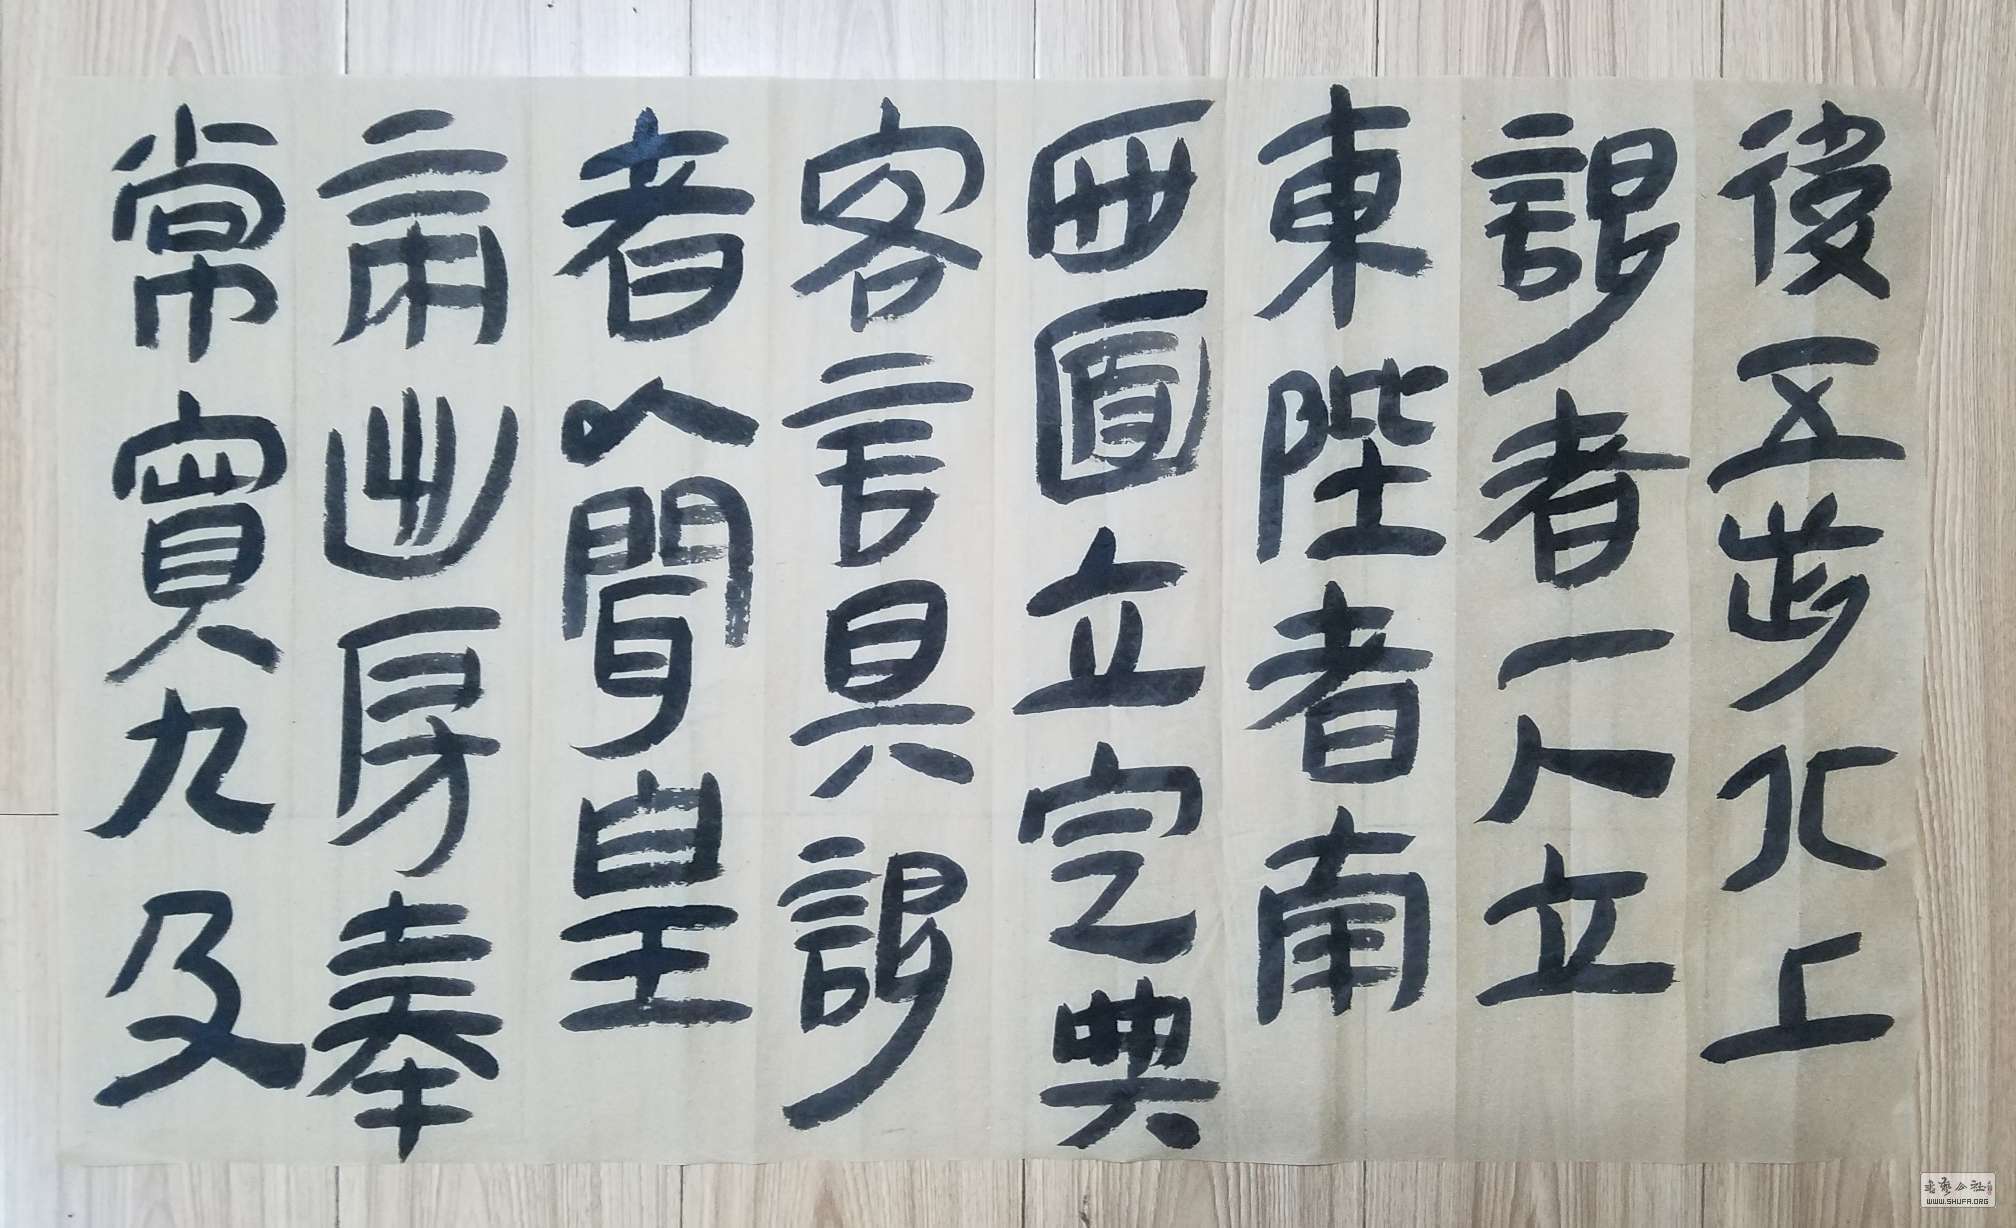 後五步北上
謁者一人立
東陛者南
西面立定典
客言具謁
者以聞皇
帝出房奉
常賓九及
书艺公社
WWW.SHUFA.ORG